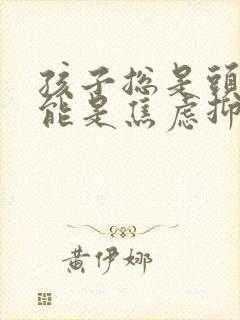 孩子總是頭
能是焦慮抑
黃伊娜